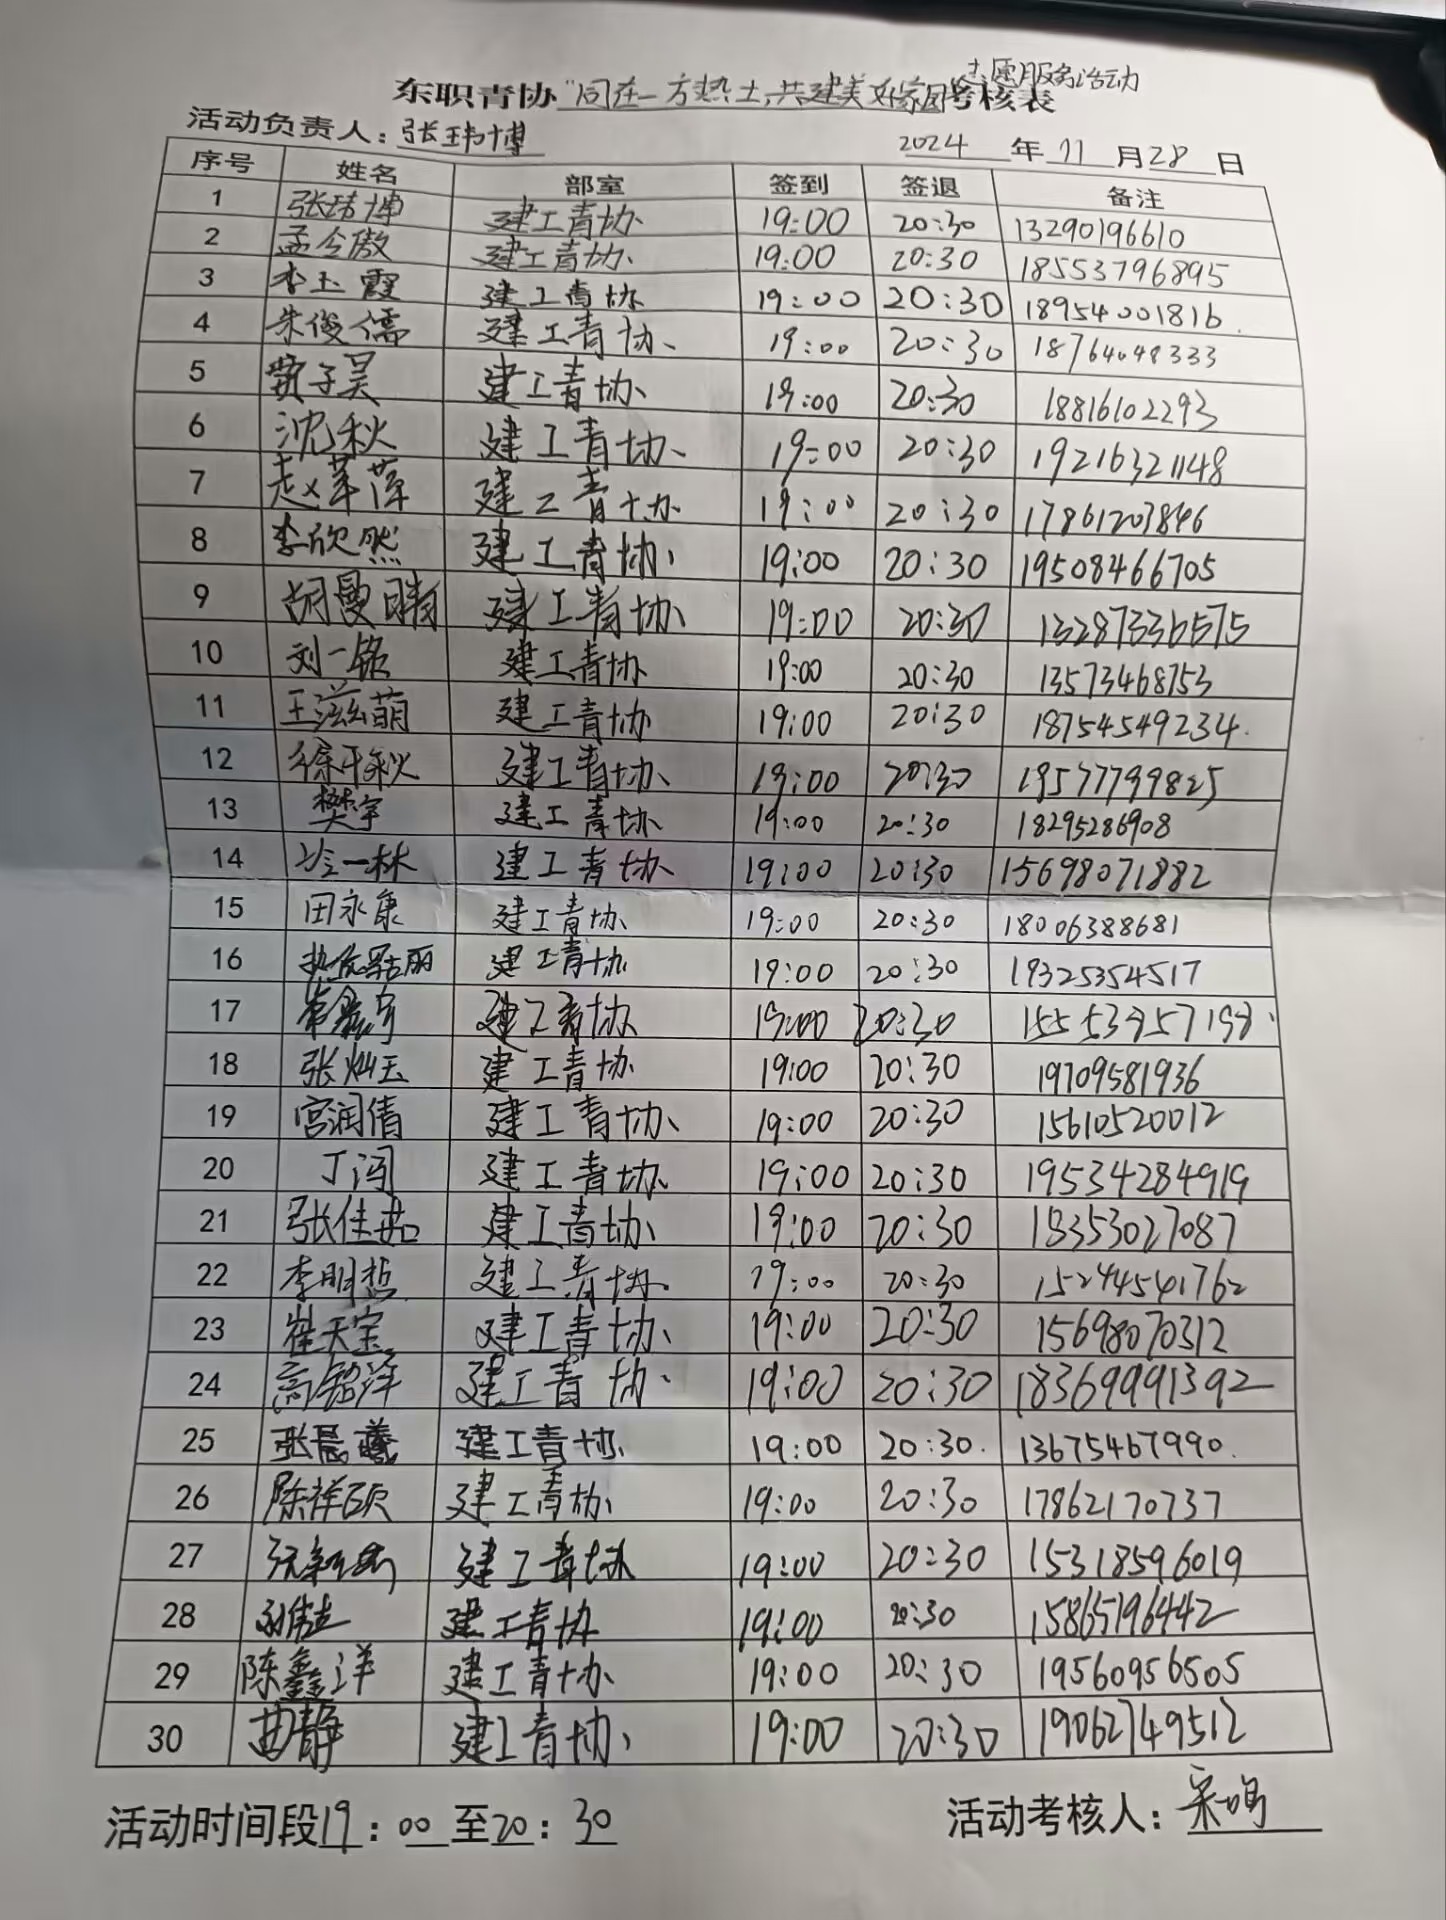 东职青协“同在一方热土,共建美好家园”志愿服务活动考核表
活动负责人:张玮博 2024年11月28日
序号 姓名 部室 签到 签退 备注
1 张玮博 建工青协 19:00 20:30 13290196610
2 孟令傲 建工青协 19:00 20:30 18553796895
3 李玉霞 建工青协 19:00 20:30 18954001816
4 朱俊儒 建工青协 19:00 20:30 18764048333
5 黄子昊 建工青协 19:00 20:30 18816102293
6 沈秋 建工青协 19:00 20:30 19216321148
7 赵苹萍 建工青协 19:00 20:30 17861203846
8 李欣然 建工青协 19:00 20:30 19508466705
9 胡曼晴 建工青协 19:00 20:30 13287336575
10 刘一铭 建工青协 19:00 20:30 13573468753
11 王滋萌 建工青协 19:00 20:30 18754549234
12 徐千秋 建工青协 19:00 20:30 19577799825
13 樊宇 建工青协 19:00 20:30 18295286908
14 冷一林 建工青协 19:00 20:30 15698071882
15 田永康 建工青协 19:00 20:30 18006388681
16 建工青协 19:00 20:30 19325354517
17 建工青协 19:00 20:30
18 张灿玉 建工青协 19:00 20:30 19709581936
19 宫润倩 建工青协 19:00 20:30 15610520012
20 丁闯 建工青协 19:00 20:30 19534284919
21 张佳茹 建工青协 19:00 20:30 18353027087
22 李明哲 建工青协 19:00 20:30 15244541762
23 崔天宝 建工青协 19:00 20:30 15698070312
24 高铭泽 建工青协 19:00 20:30 18369991392
25 张晨曦 建工青协 19:00 20:30 13675467990
26 陈祥硕 建工青协 19:00 20:30 17862170737
27 建工青协 19:00 20:30 15318596019
28 建工青协 19:00 20:30 15865196442
29 陈鑫洋 建工青协 19:00 20:30 19560956505
30 曲静 建工青协 19:00 20:30 19062749512
活动时间段19:00至20:30 活动考核人: